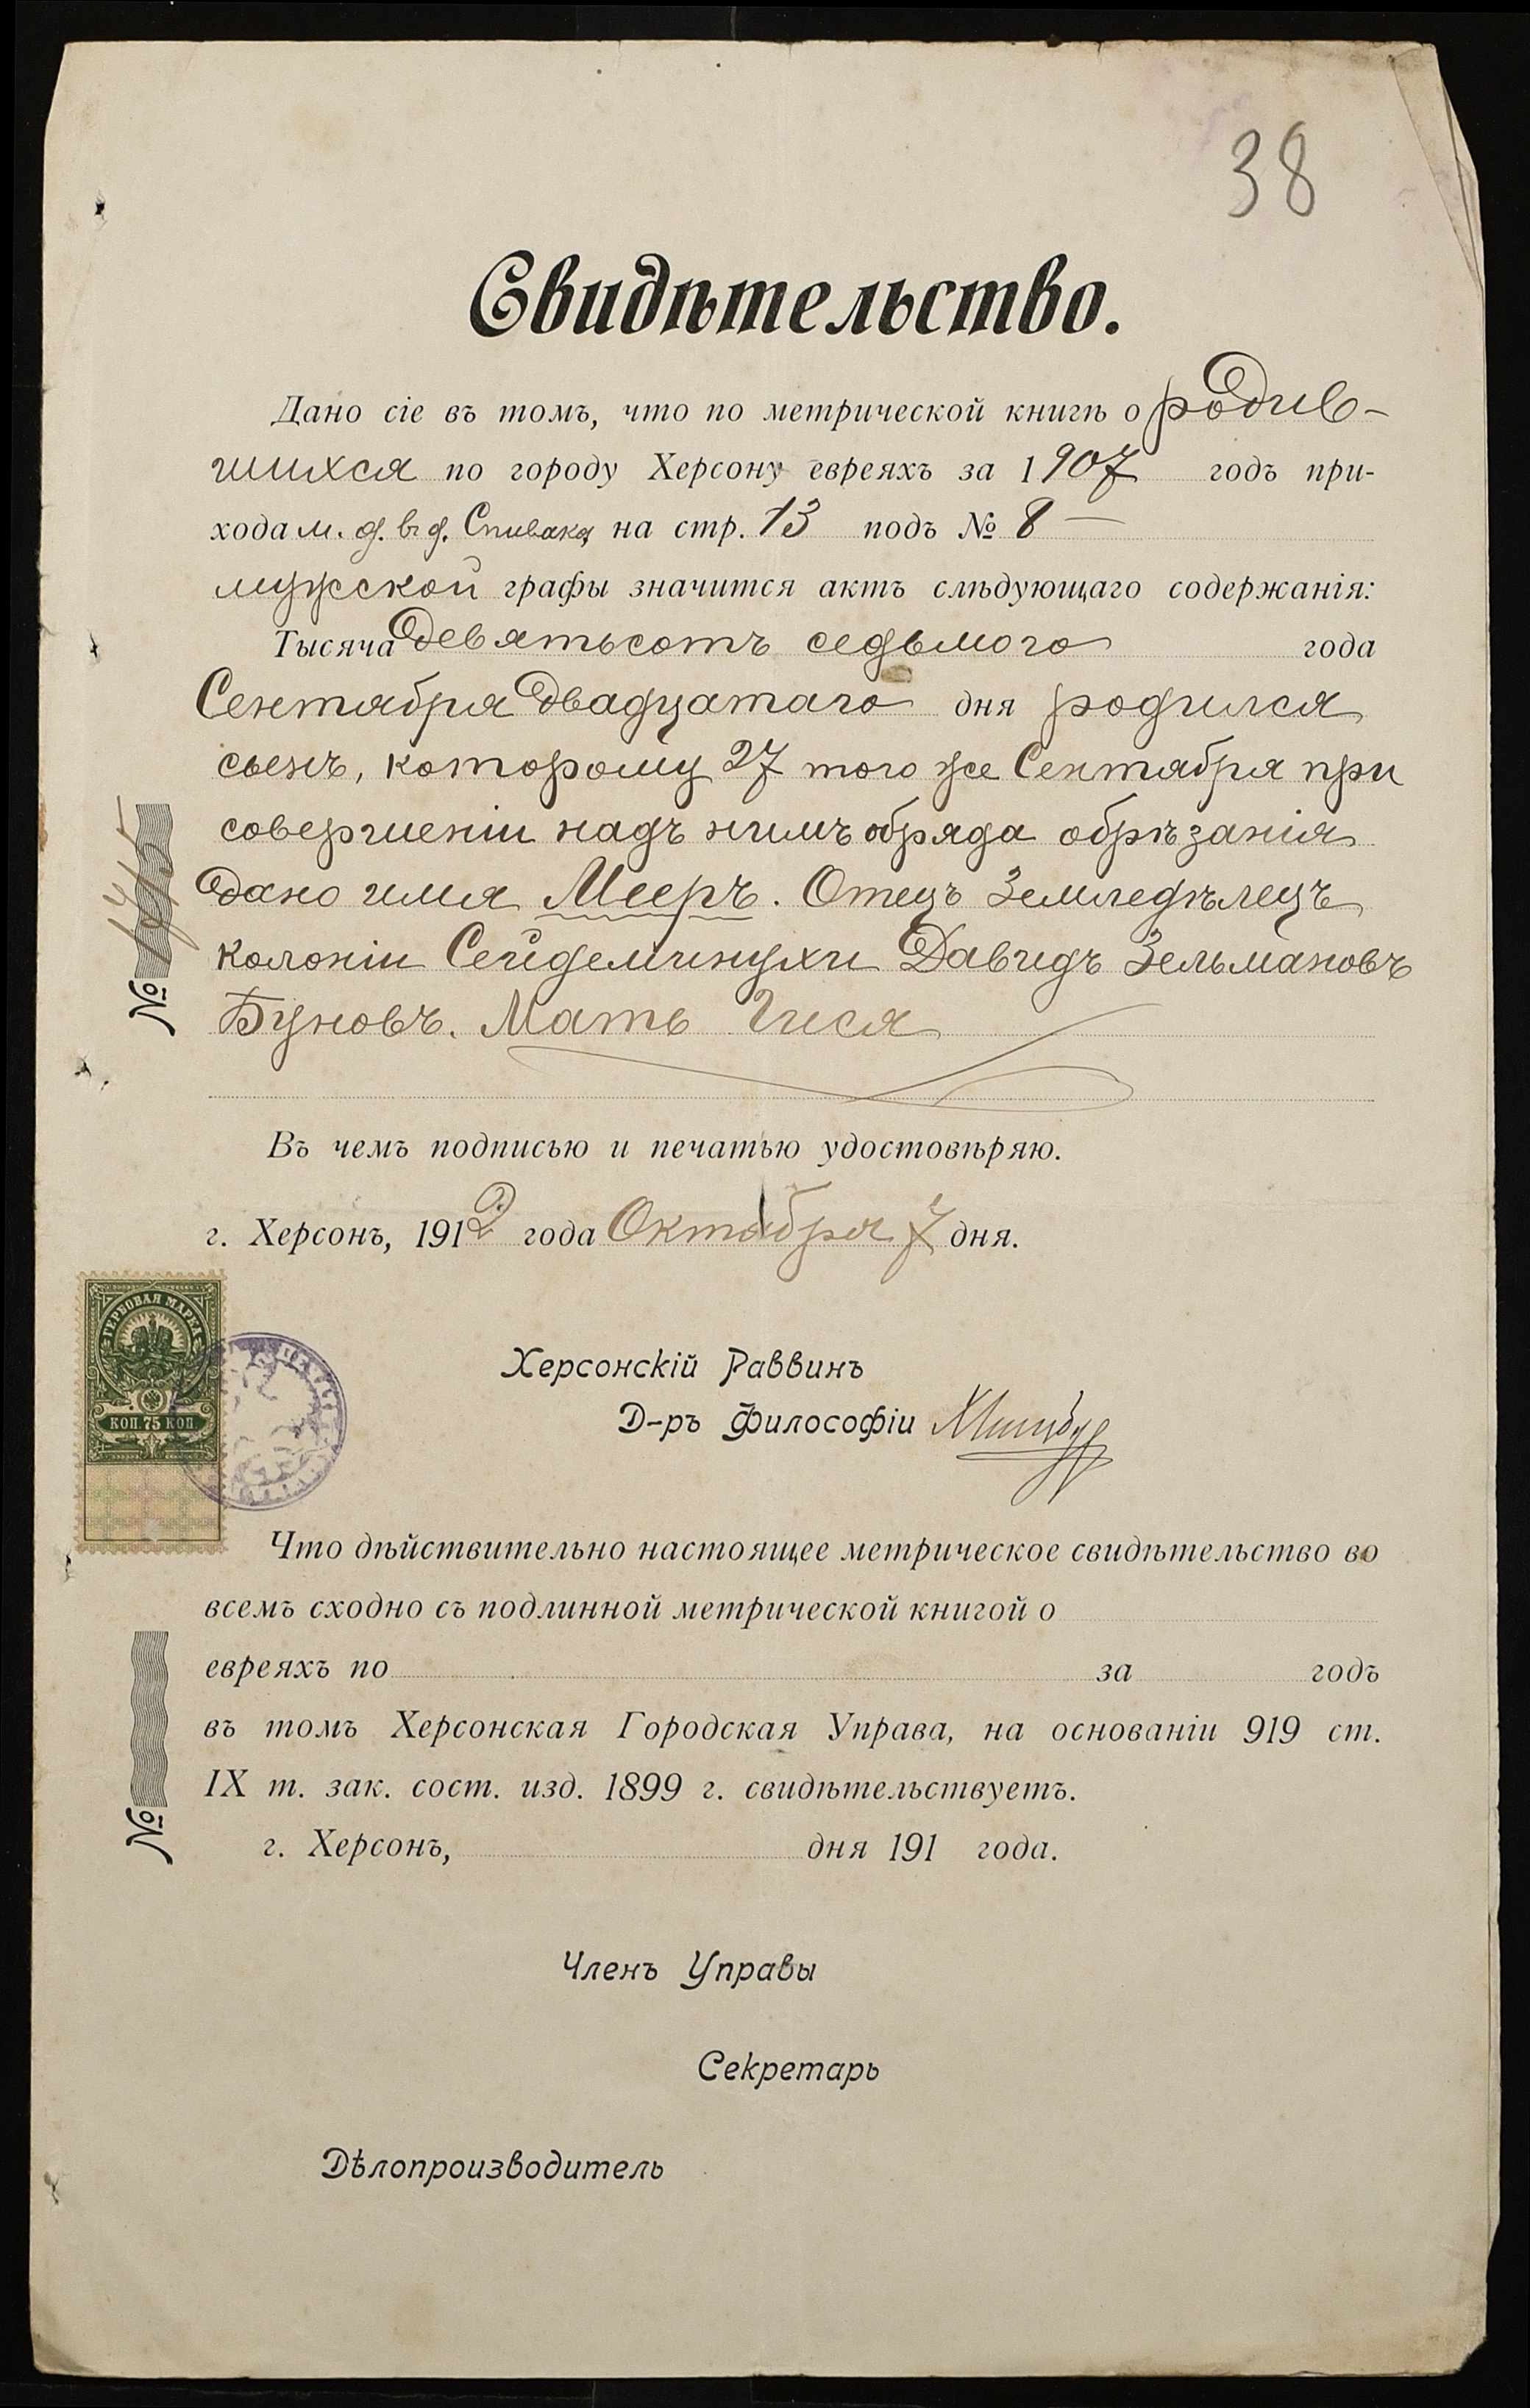 38
Свидѣтельство.
Дано сіе въ томъ, что по метрической книгѣ о родив-
шихся по городу Херсону евреяхъ за 1907 годъ при-
хода м. д. в. д. Спивака, на стр. 13 подъ № 8 —
мужской графы значится актъ слѣдующаго содержанія:
Тысяча девятьсотъ седьмого года
Сентября двадцатаго дня родился
сынъ, которому 27 того же Сентября при
совершеніи надъ нимъ обряда обрѣзанія
дано имя Мееръ. Отецъ Земледѣлецъ
колоніи Сейдеминухи Давидъ Зельмановъ
Буновъ. Мать Гися
№ 1715
Въ чемъ подписью и печатью удостовѣряю.
г. Херсонъ, 1912 года Октября 7 дня.
ГЕРБОВАЯ МАРКА
КОП 75 КОП
Херсонскій Раввинъ
Д-ръ Философіи
Что дѣйствительно настоящее метрическое свидѣтельство во
всемъ сходно съ подлинной метрической книгой о
евреяхъ по за годъ
въ томъ Херсонская Городская Управа, на основаніи 919 ст.
IX т. зак. сост. изд. 1899 г. свидѣтельствуетъ.
№
г. Херсонъ, дня 191 года.
Членъ Управы
Секретарь
Дѣлопроизводитель